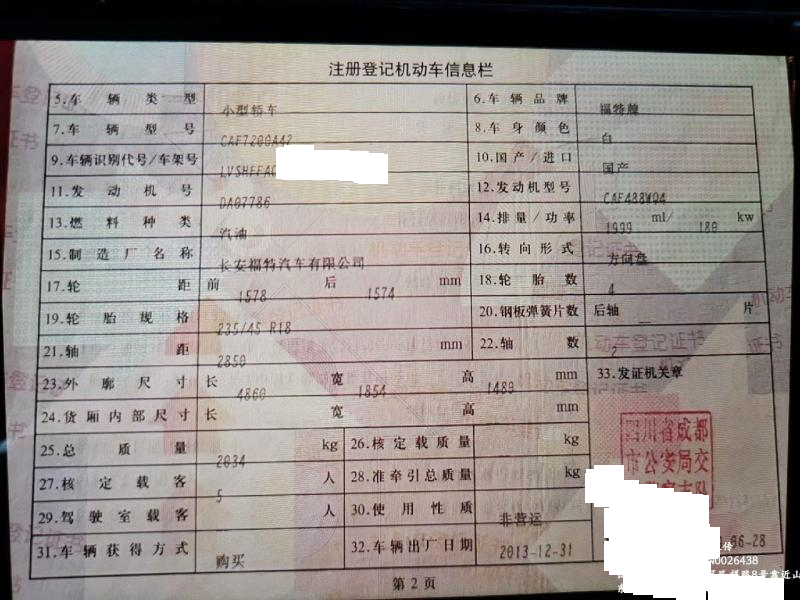 注册登记机动车信息栏
5.车辆类型 小型轿车 6.车辆品牌 福特牌
7.车辆型号 CAF7200A42 8.车身颜色 白
9.车辆识别代号/车架号 LVSHFFAC 10.国产/进口 国产
11.发动机号 DA07786 12.发动机型号 CAF488WQ4
13.燃料种类 汽油 14.排量/功率 1999 ml/ 180 kw
15.制造厂名称 长安福特汽车有限公司 16.转向形式 方向盘
17.轮距 前 1578 后 1574 mm 18.轮胎数 4
19.轮胎规格 235/45 R18 20.钢板弹簧片数 后轴 — 片
21.轴距 2850 mm 22.轴数 2
23.外廓尺寸 长 4860 宽 1854 高 1480 mm 33.发证机关章
24.货厢内部尺寸 长 宽 高 mm
25.总质量 2034 kg 26.核定载质量 kg
27.核定载客 5 人 28.准牵引总质量 kg
29.驾驶室载客 人 30.使用性质 非营运
31.车辆获得方式 购买 32.车辆出厂日期 2013-12-31
四川省成都
市公安局交
06-28
0026438
第2页